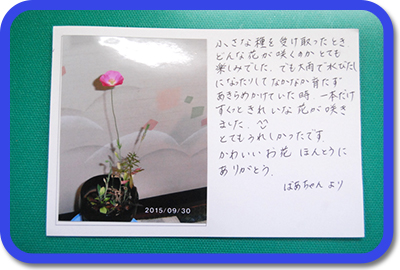 小さな種を受け取ったとき
どんな花が咲くのかとても
楽しみでした。でも大雨で水びたし
になったりしてなかなか育たず
あきらめかけていた時 一本だけ
すくっときれいな花が咲き
ました。^^
とてもうれしかったです
かわいいお花 ほんとうに
ありがとう。
ばあちゃんより
2015/09/30